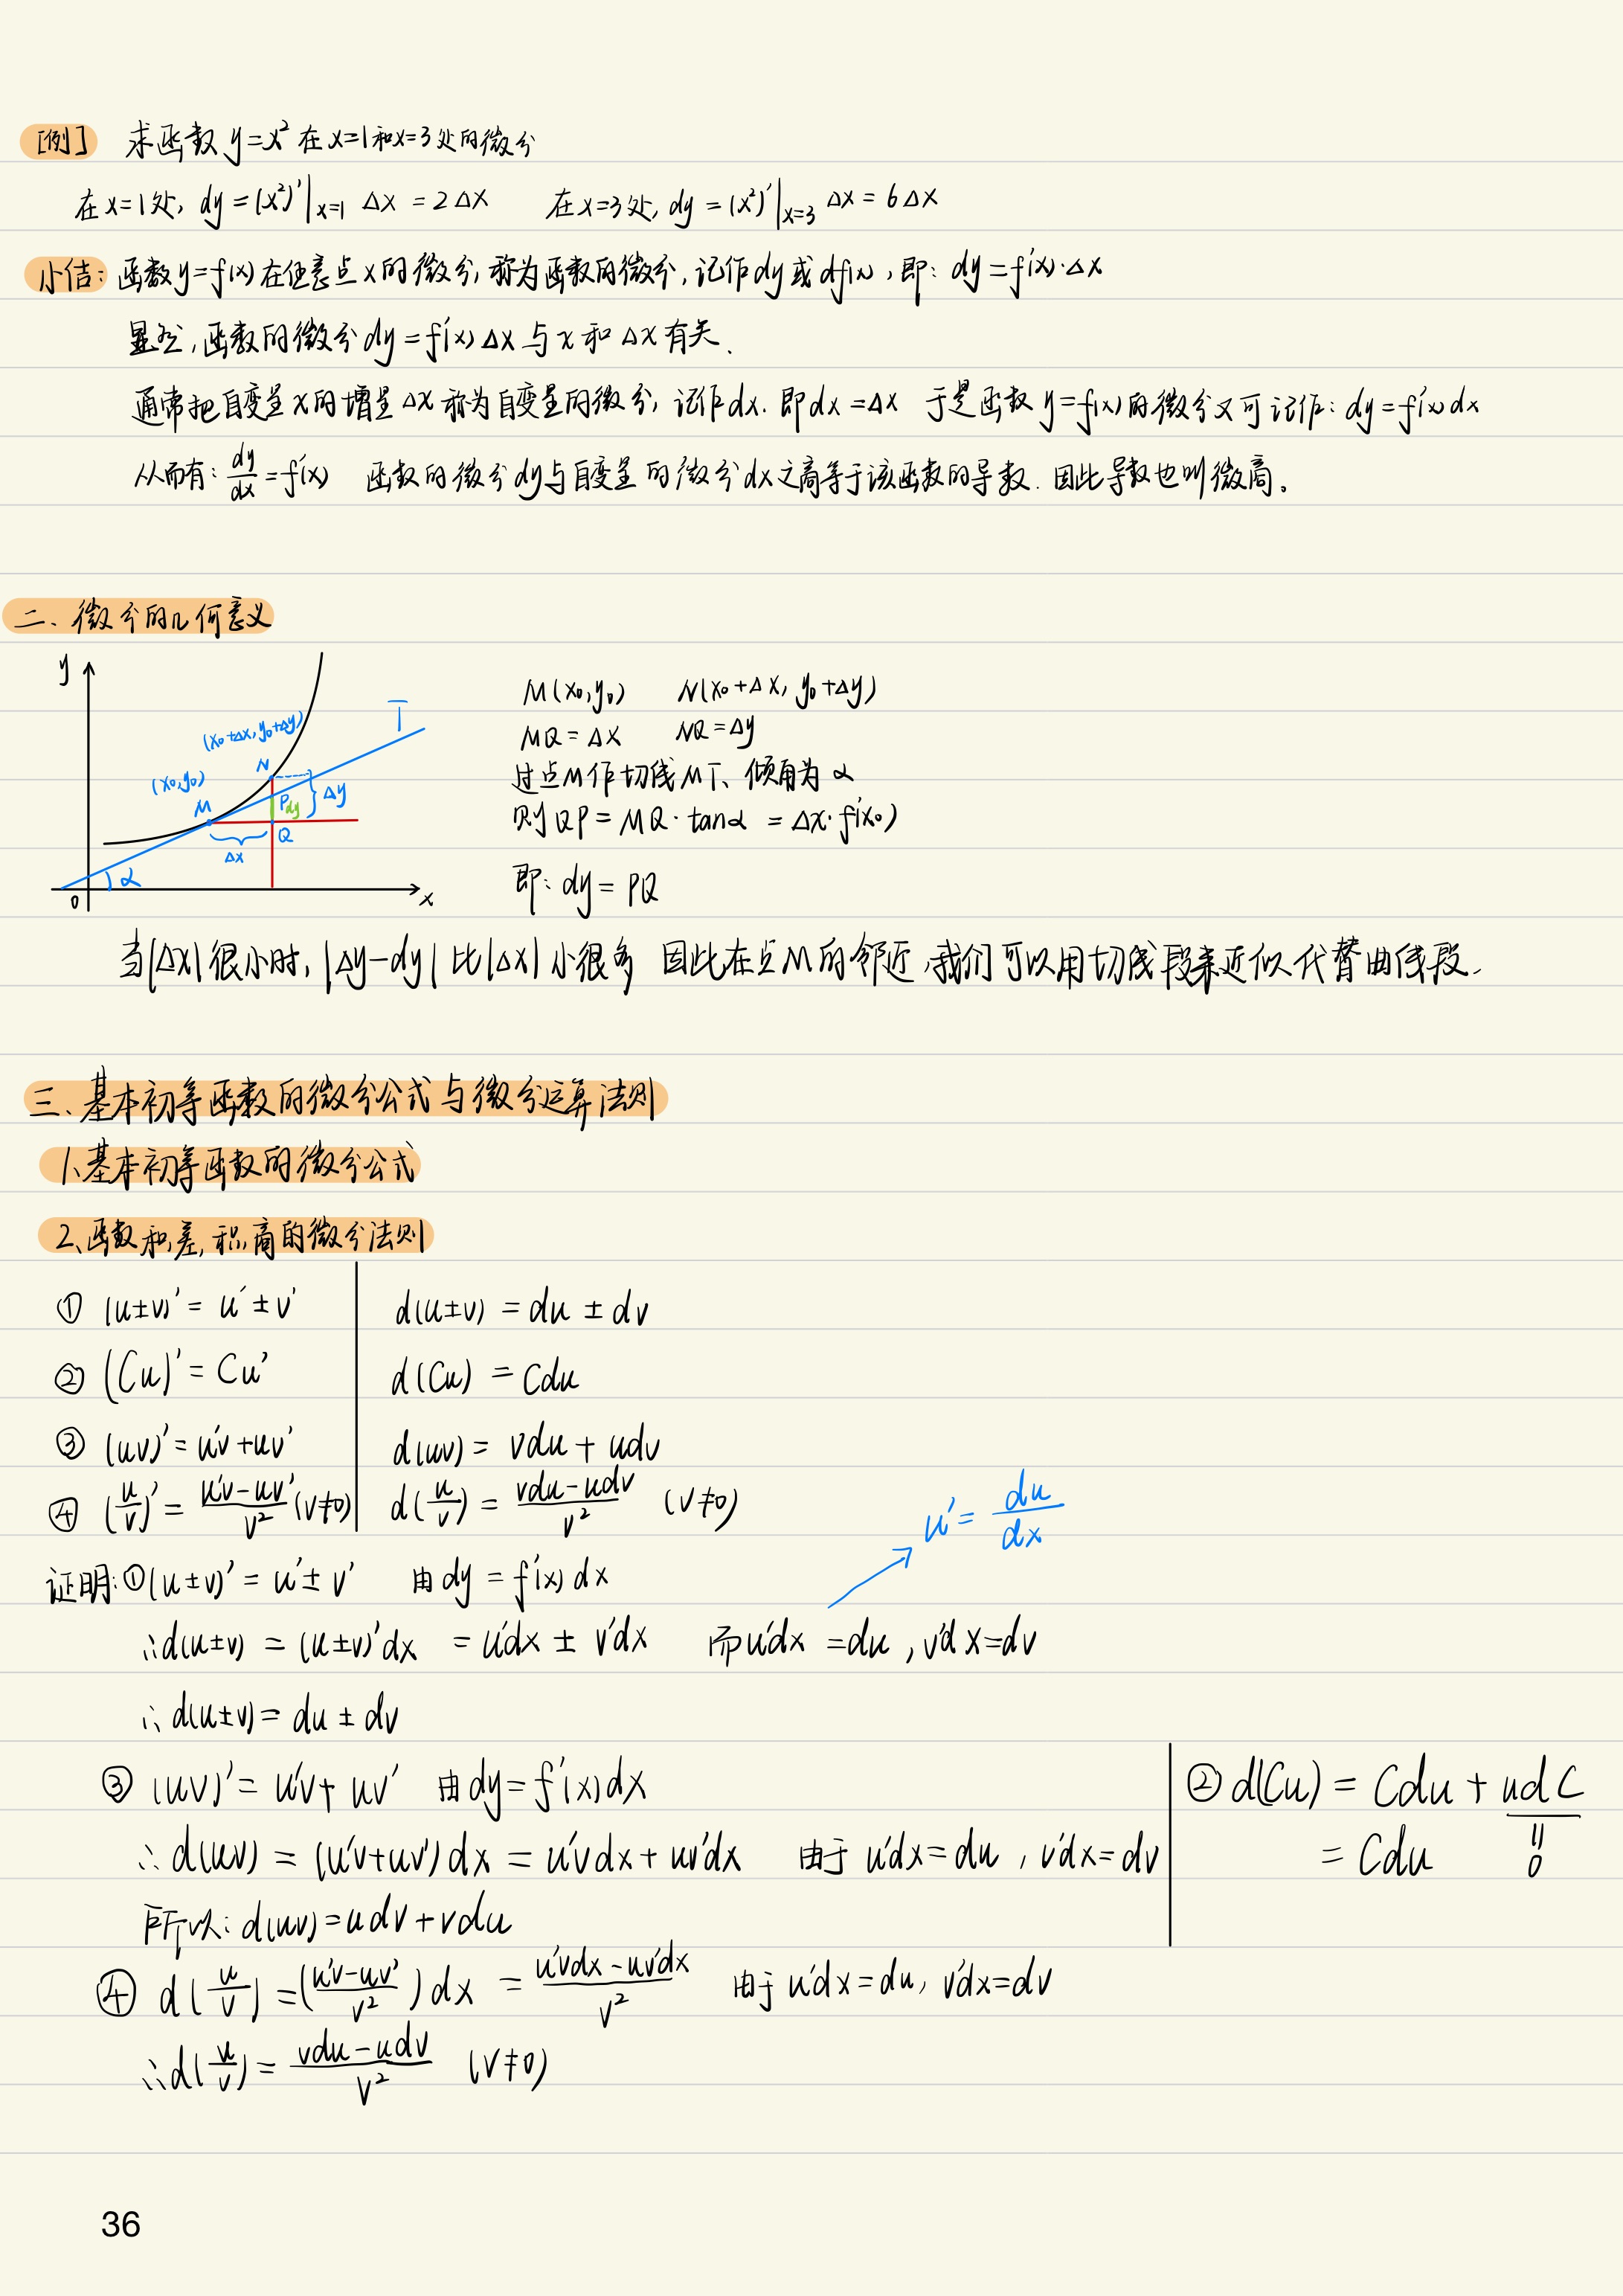 [例] 求函数 y=x² 在x=1和x=3处的微分
在x=1处, dy=(x²)'|x=1 Δx = 2Δx 在x=3处, dy=(x²)'|x=3 Δx = 6Δx
小结: 函数y=f(x)在任意点x的微分, 称为函数的微分, 记作dy或df(x), 即: dy=f'(x)·Δx
显然, 函数的微分dy=f'(x)Δx与x和Δx有关.
通常把自变量x的增量Δx称为自变量的微分, 记作dx. 即dx=Δx 于是函数y=f(x)的微分又可记作: dy=f'(x)dx
从而有: dy/dx=f'(x) 函数的微分dy与自变量的微分dx之商等于该函数的导数. 因此导数也叫微商。
二、微分的几何意义
y
T
(x₀+Δx, y₀+Δy)
(x₀,y₀)
N
M
P
dy
Δy
Q
Δx
α
0
x
M(x₀,y₀) N(x₀+Δx, y₀+Δy)
MQ=Δx NQ=Δy
过点M作切线MT、倾角为α
则QP=MQ·tanα =Δx·f'(x₀)
即: dy=PQ
当|Δx|很小时, |Δy-dy|比|Δx|小很多 因此在点M的邻近, 我们可以用切线段来近似代替曲线段.
三、基本初等函数的微分公式与微分运算法则
1、基本初等函数的微分公式
2、函数和,差,积,商的微分法则
① (u±v)'=u'±v' d(u±v)=du±dv
② (Cu)'=Cu' d(Cu)=Cdu
③ (uv)'=u'v+uv' d(uv)=vdu+udv
④ (u/v)'=(u'v-uv')/v² (v≠0) d(u/v)=(vdu-udv)/v² (v≠0)
u'=du/dx
证明: ①(u±v)'=u'±v' 由dy=f'(x)dx
∴d(u±v)=(u±v)'dx =u'dx±v'dx 而u'dx=du, v'dx=dv
∴d(u±v)=du±dv
③ (uv)'=u'v+uv' 由dy=f'(x)dx
∴d(uv)=(u'v+uv')dx=u'vdx+uv'dx 由于u'dx=du, v'dx=dv
所以: d(uv)=udv+vdu
② d(Cu)=Cdu+udC
=Cdu
=
0
④ d(u/v)=((u'v-uv')/v²)dx=(u'vdx-uv'dx)/v² 由于u'dx=du, v'dx=dv
∴d(u/v)=(vdu-udv)/v² (v≠0)
36